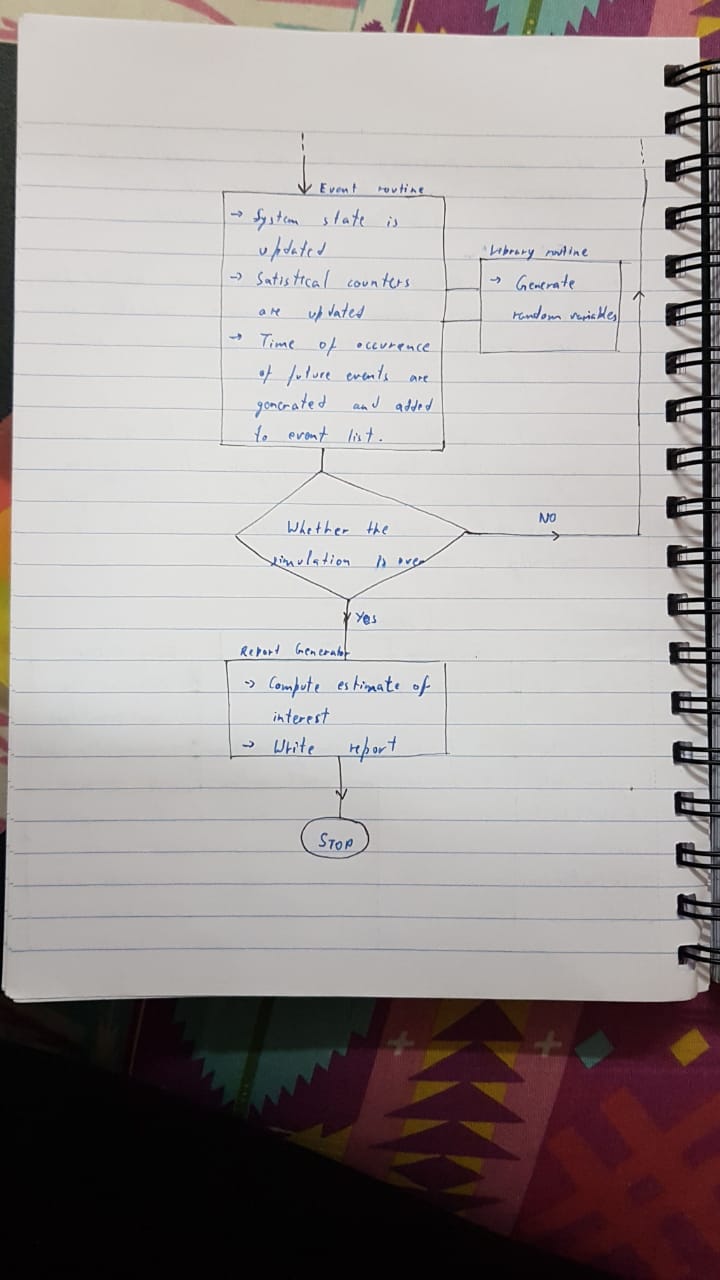 Event routine
→ System state is
updated
→ Satistical counters
are updated
→ Time of occurence
of future events are
generated and added
to event list.
Library routine
→ Generate
random variables
Whether the
simulation is over
NO
Yes
Report Generator
→ Compute estimate of
interest
→ Write report
STOP